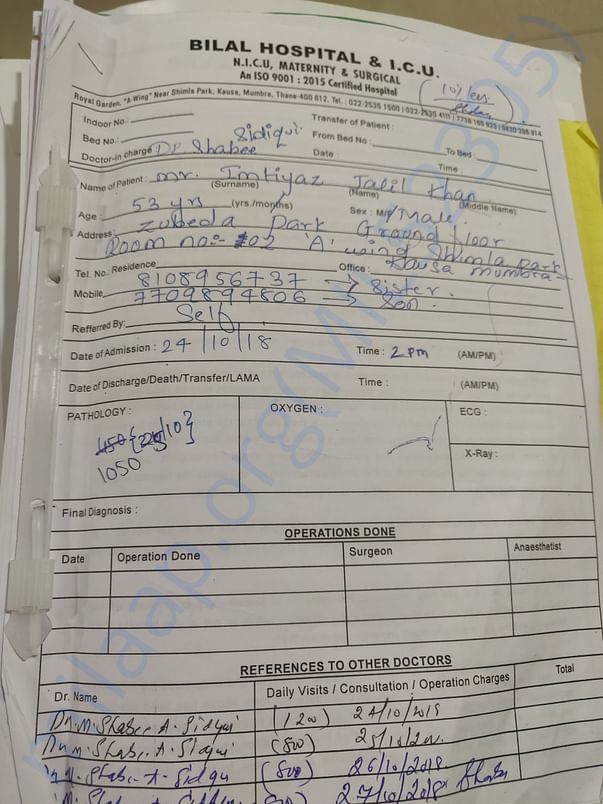 BILAL HOSPITAL & I.C.U.
N.I.C.U, MATERNITY & SURGICAL
An ISO 9001 : 2015 Certified Hospital
Royal Garden, "A-Wing" Near Shimla Park, Kausa, Mumbra, Thane-400 612. Tel. : 022-2535 1500 | 022-2535 4111 |
Indoor No.: Transfer of Patient :
Bed No.: From Bed No : To Bed
Doctor-in charge Dr Shabee Sidiqui Date : Time :
Name of Patient : Mr. Imtiyaz Jalil Khan
(Surname) (Name) (Middle Name)
Age : 53 yrs (yrs./months) Sex : M/F/Male
Address: Zubeda Park Ground floor
Room no:- 102 'A' wing Shimla park
Tel. No. Residence Office : Kausa mumbra
8108956737 → Sister.
Mobile 7709894806 → Son.
Reffered By: Self
Date of Admission : 24/10/18 Time : 2 pm (AM/PM)
Date of Discharge/Death/Transfer/LAMA Time : (AM/PM)
PATHOLOGY : OXYGEN : ECG :
1050
X-Ray :
Final Diagnosis :
OPERATIONS DONE
Date Operation Done Surgeon Anaesthetist
REFERENCES TO OTHER DOCTORS
Dr. Name Daily Visits / Consultation / Operation Charges Total
Dr. M. Shabee A. Sidqui (1200) 24/10/2018
Dr. M. Shabee A. Sidqui (800) 25/10/
M. Shabee A. Sidqui (800) 26/10/2018
27/10/2018
milaap.org